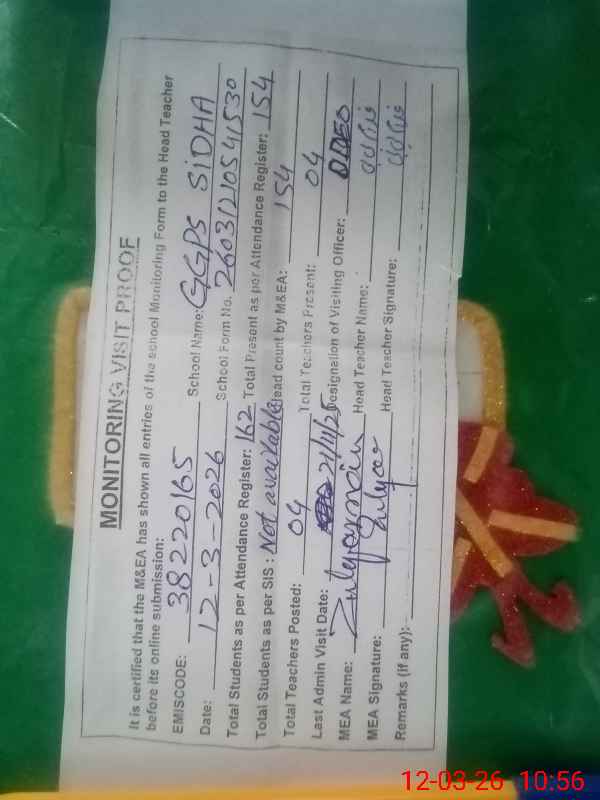 MONITORING VISIT PROOF
It is certified that the M&EA has shown all entries of the school Monitoring Form to the Head Teacher
before its online submission:
EMISCODE: 38220165 School Name: GGPS SIDHA
Date: 12-3-2026 School Form No. 26031210541530
Total Students as per Attendance Register: 162 Total Present as per Attendance Register: 154
Total Students as per SIS: Not available Head count by M&EA: 154
Total Teachers Posted: 04 Total Teachers Present: 04
Last Admin Visit Date: 21/11/25 Designation of Visiting Officer: DDEO
MEA Name: Head Teacher Name:
MEA Signature: Head Teacher Signature:
Remarks (if any):
12-03-26 10:56